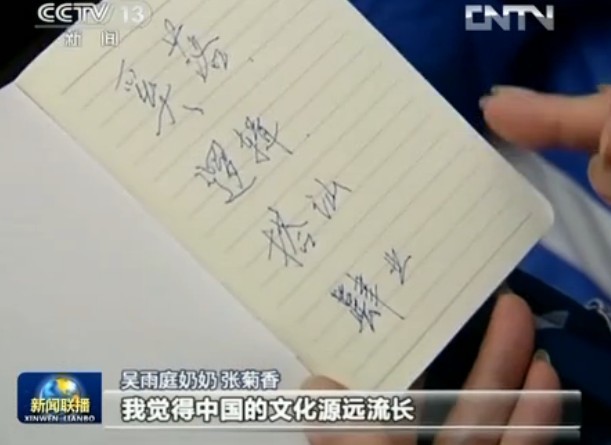 CCTV 13
新闻
CNTV
落
逻辑
搭讪
肄业
吴雨庭奶奶 张菊香
新闻联播
XINWEN-LIANBO
我觉得中国的文化源远流长